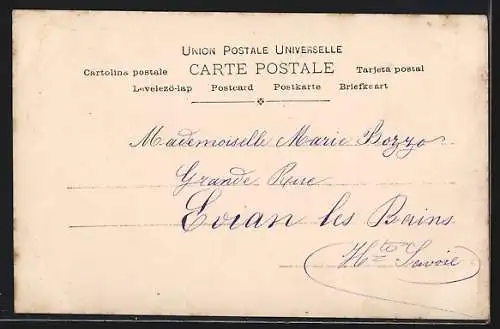 UNION POSTALE UNIVERSELLE
Cartolina postale CARTE POSTALE Tarjeta postal
Levelező-lap Postcard Postkarte Briefkaart
Mademoiselle Marie Bozzo
Grande Rue
Evian les Bains
Hte Savoie